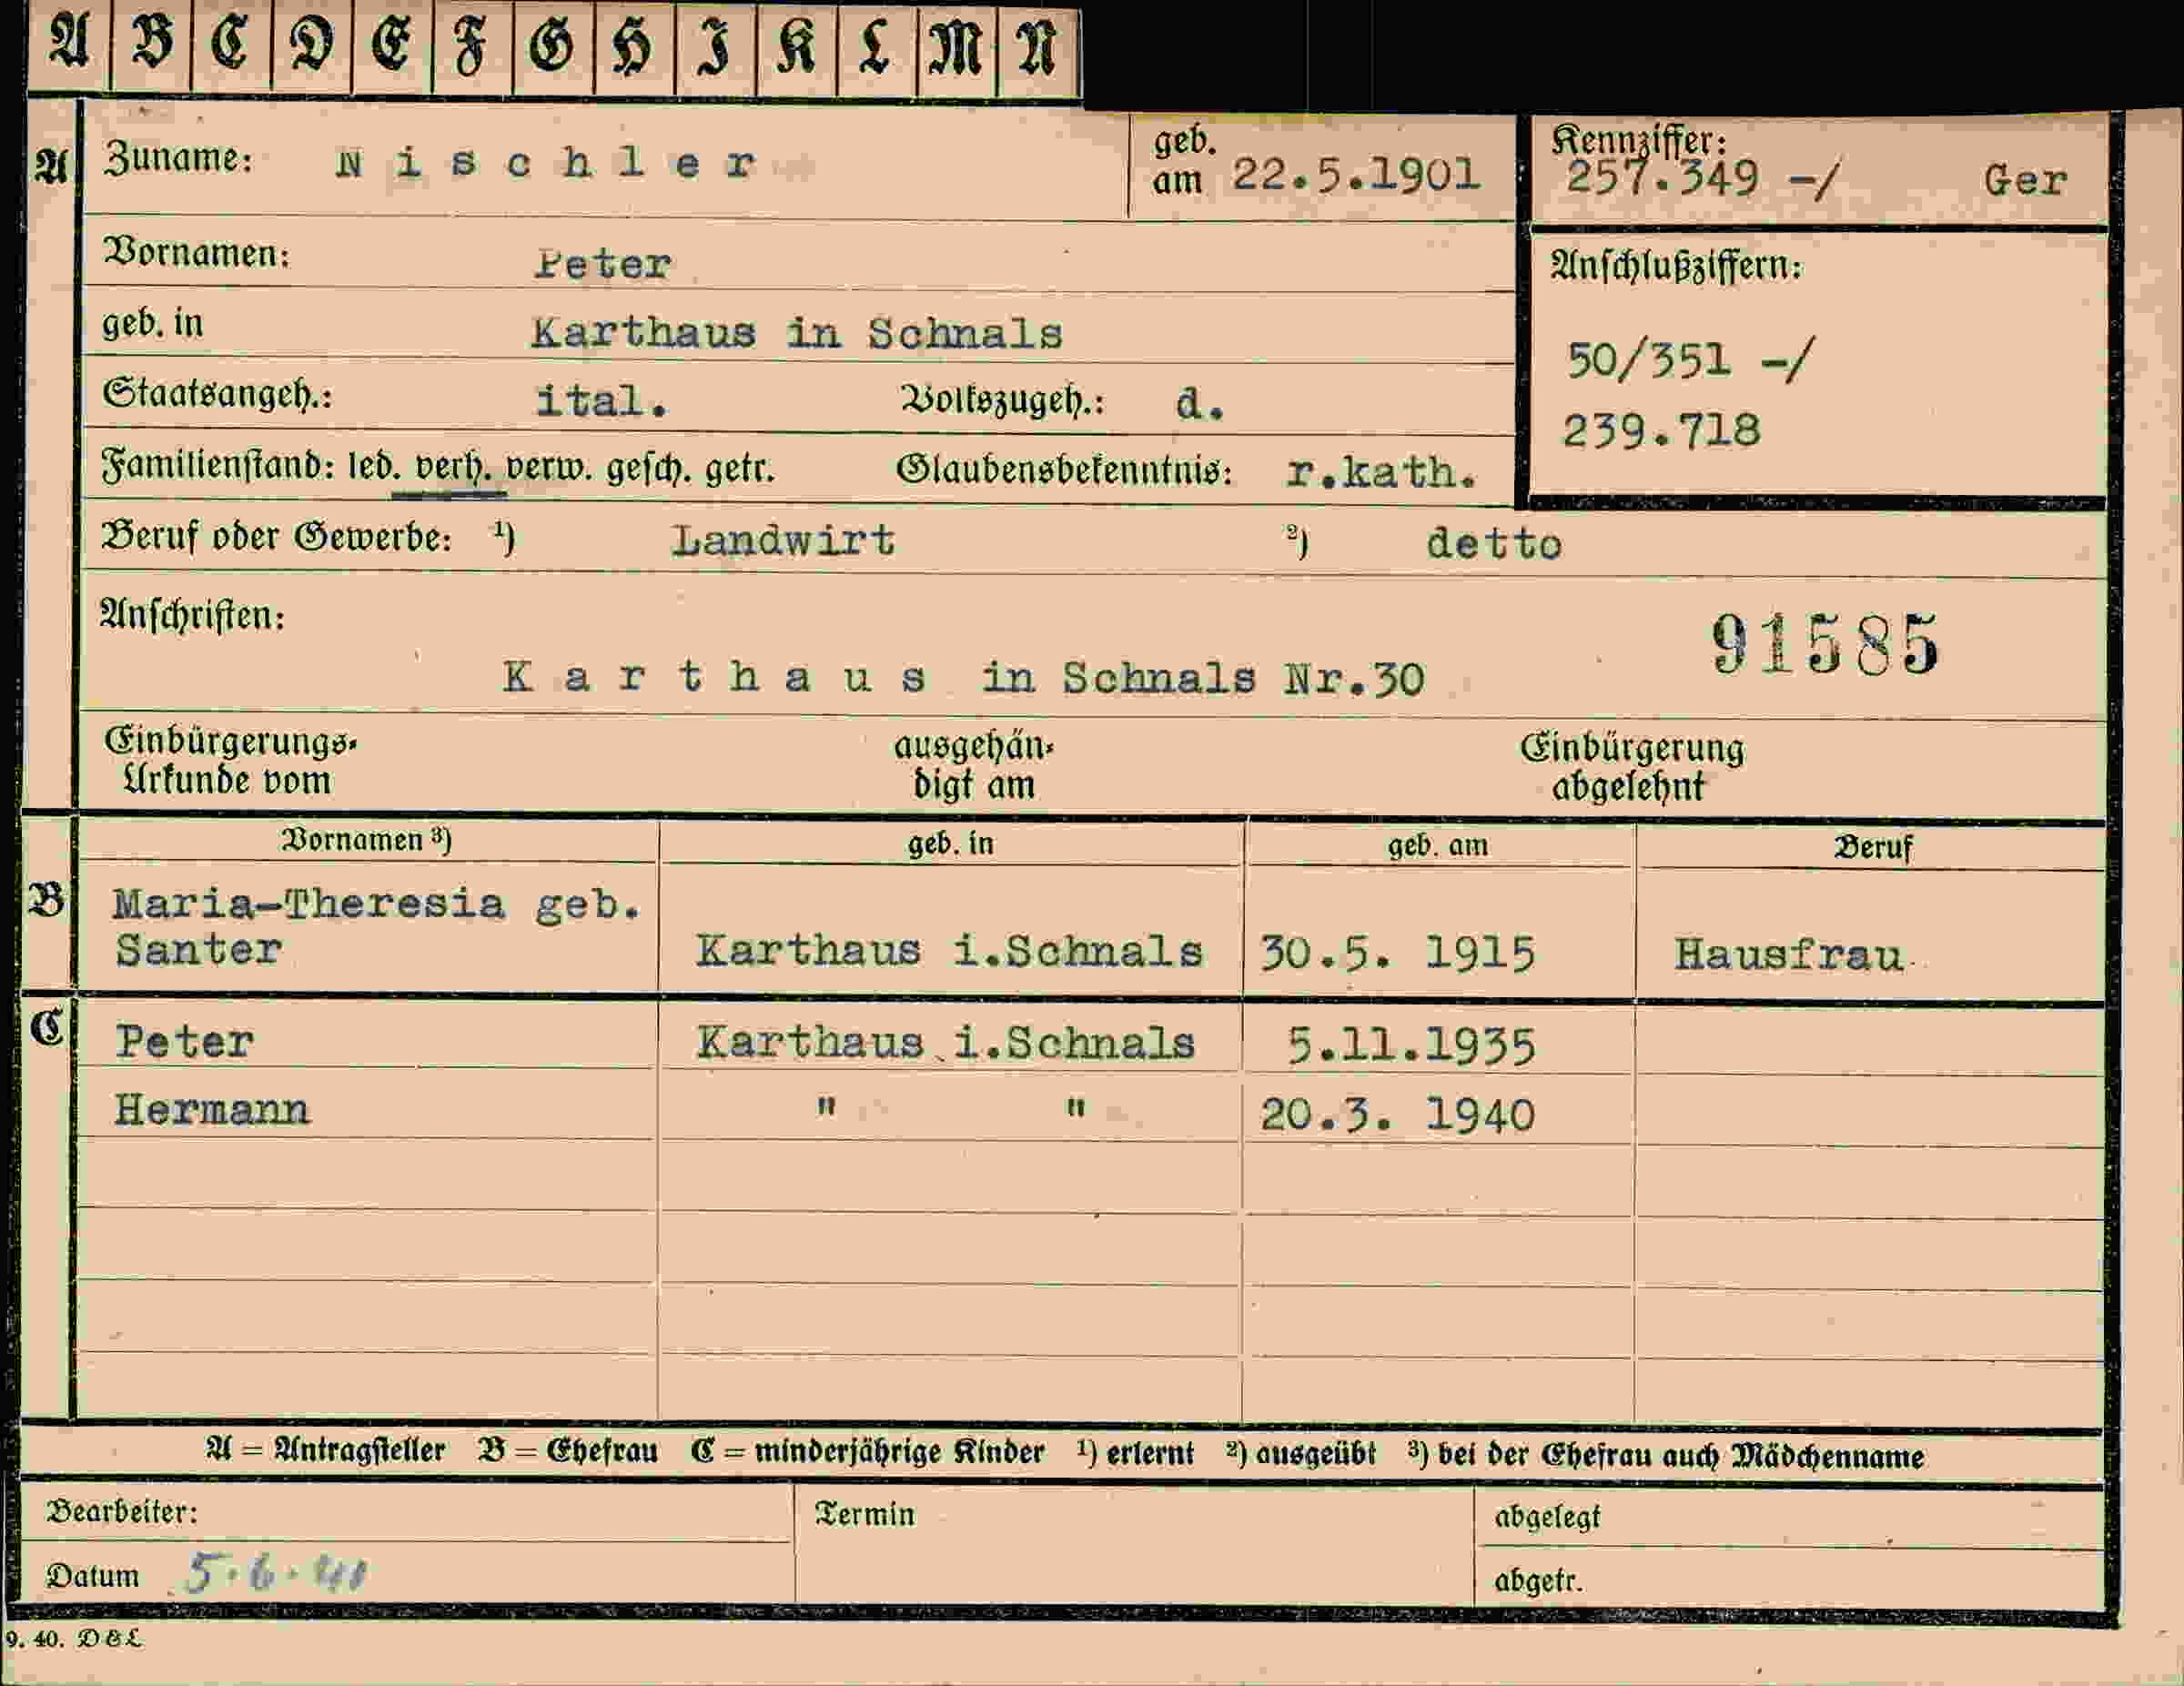 A B C D E F G H I K L M N
A Zuname: Nischler geb. am 22.5.1901 Kennziffer: 257.349 -/ Ger
Vornamen: Peter Anschlußziffern:
geb. in Karthaus in Schnals 50/351 -/
Staatsangeh.: ital. Volkszugeh.: d. 239.718
Familienstand: led. verh. verw. gesch. getr. Glaubensbekenntnis: r.kath.
Beruf oder Gewerbe: ¹) Landwirt ²) detto
Anschriften: 91585
Karthaus in Schnals Nr.30
Einbürgerungs- ausgehän- Einbürgerung
Urkunde vom digt am abgelehnt
Vornamen ³) geb. in geb. am Beruf
B Maria-Theresia geb.
Santer Karthaus i.Schnals 30.5. 1915 Hausfrau
C Peter Karthaus i.Schnals 5.11.1935
Hermann " " 20.3. 1940
A = Antragsteller B = Ehefrau C = minderjährige Kinder ¹) erlernt ²) ausgeübt ³) bei der Ehefrau auch Mädchenname
Bearbeiter: Termin abgelegt
Datum 5.6.41 abgetr.
9. 40. D&L